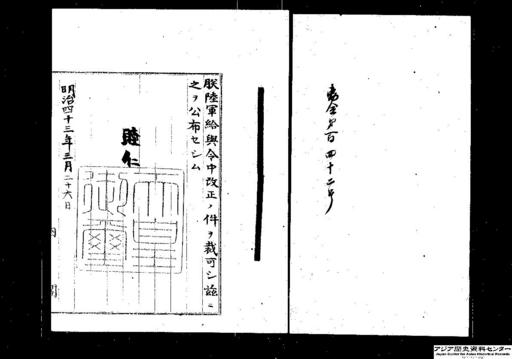 勅令第百四十二号
朕陸軍給與令中改正ノ件ヲ裁可シ茲ニ
之ヲ公布セシム
睦仁
天皇御璽
明治四十三年三月二十六日
内閣
アジア歴史資料センター
Japan Center for Asian Historical Records